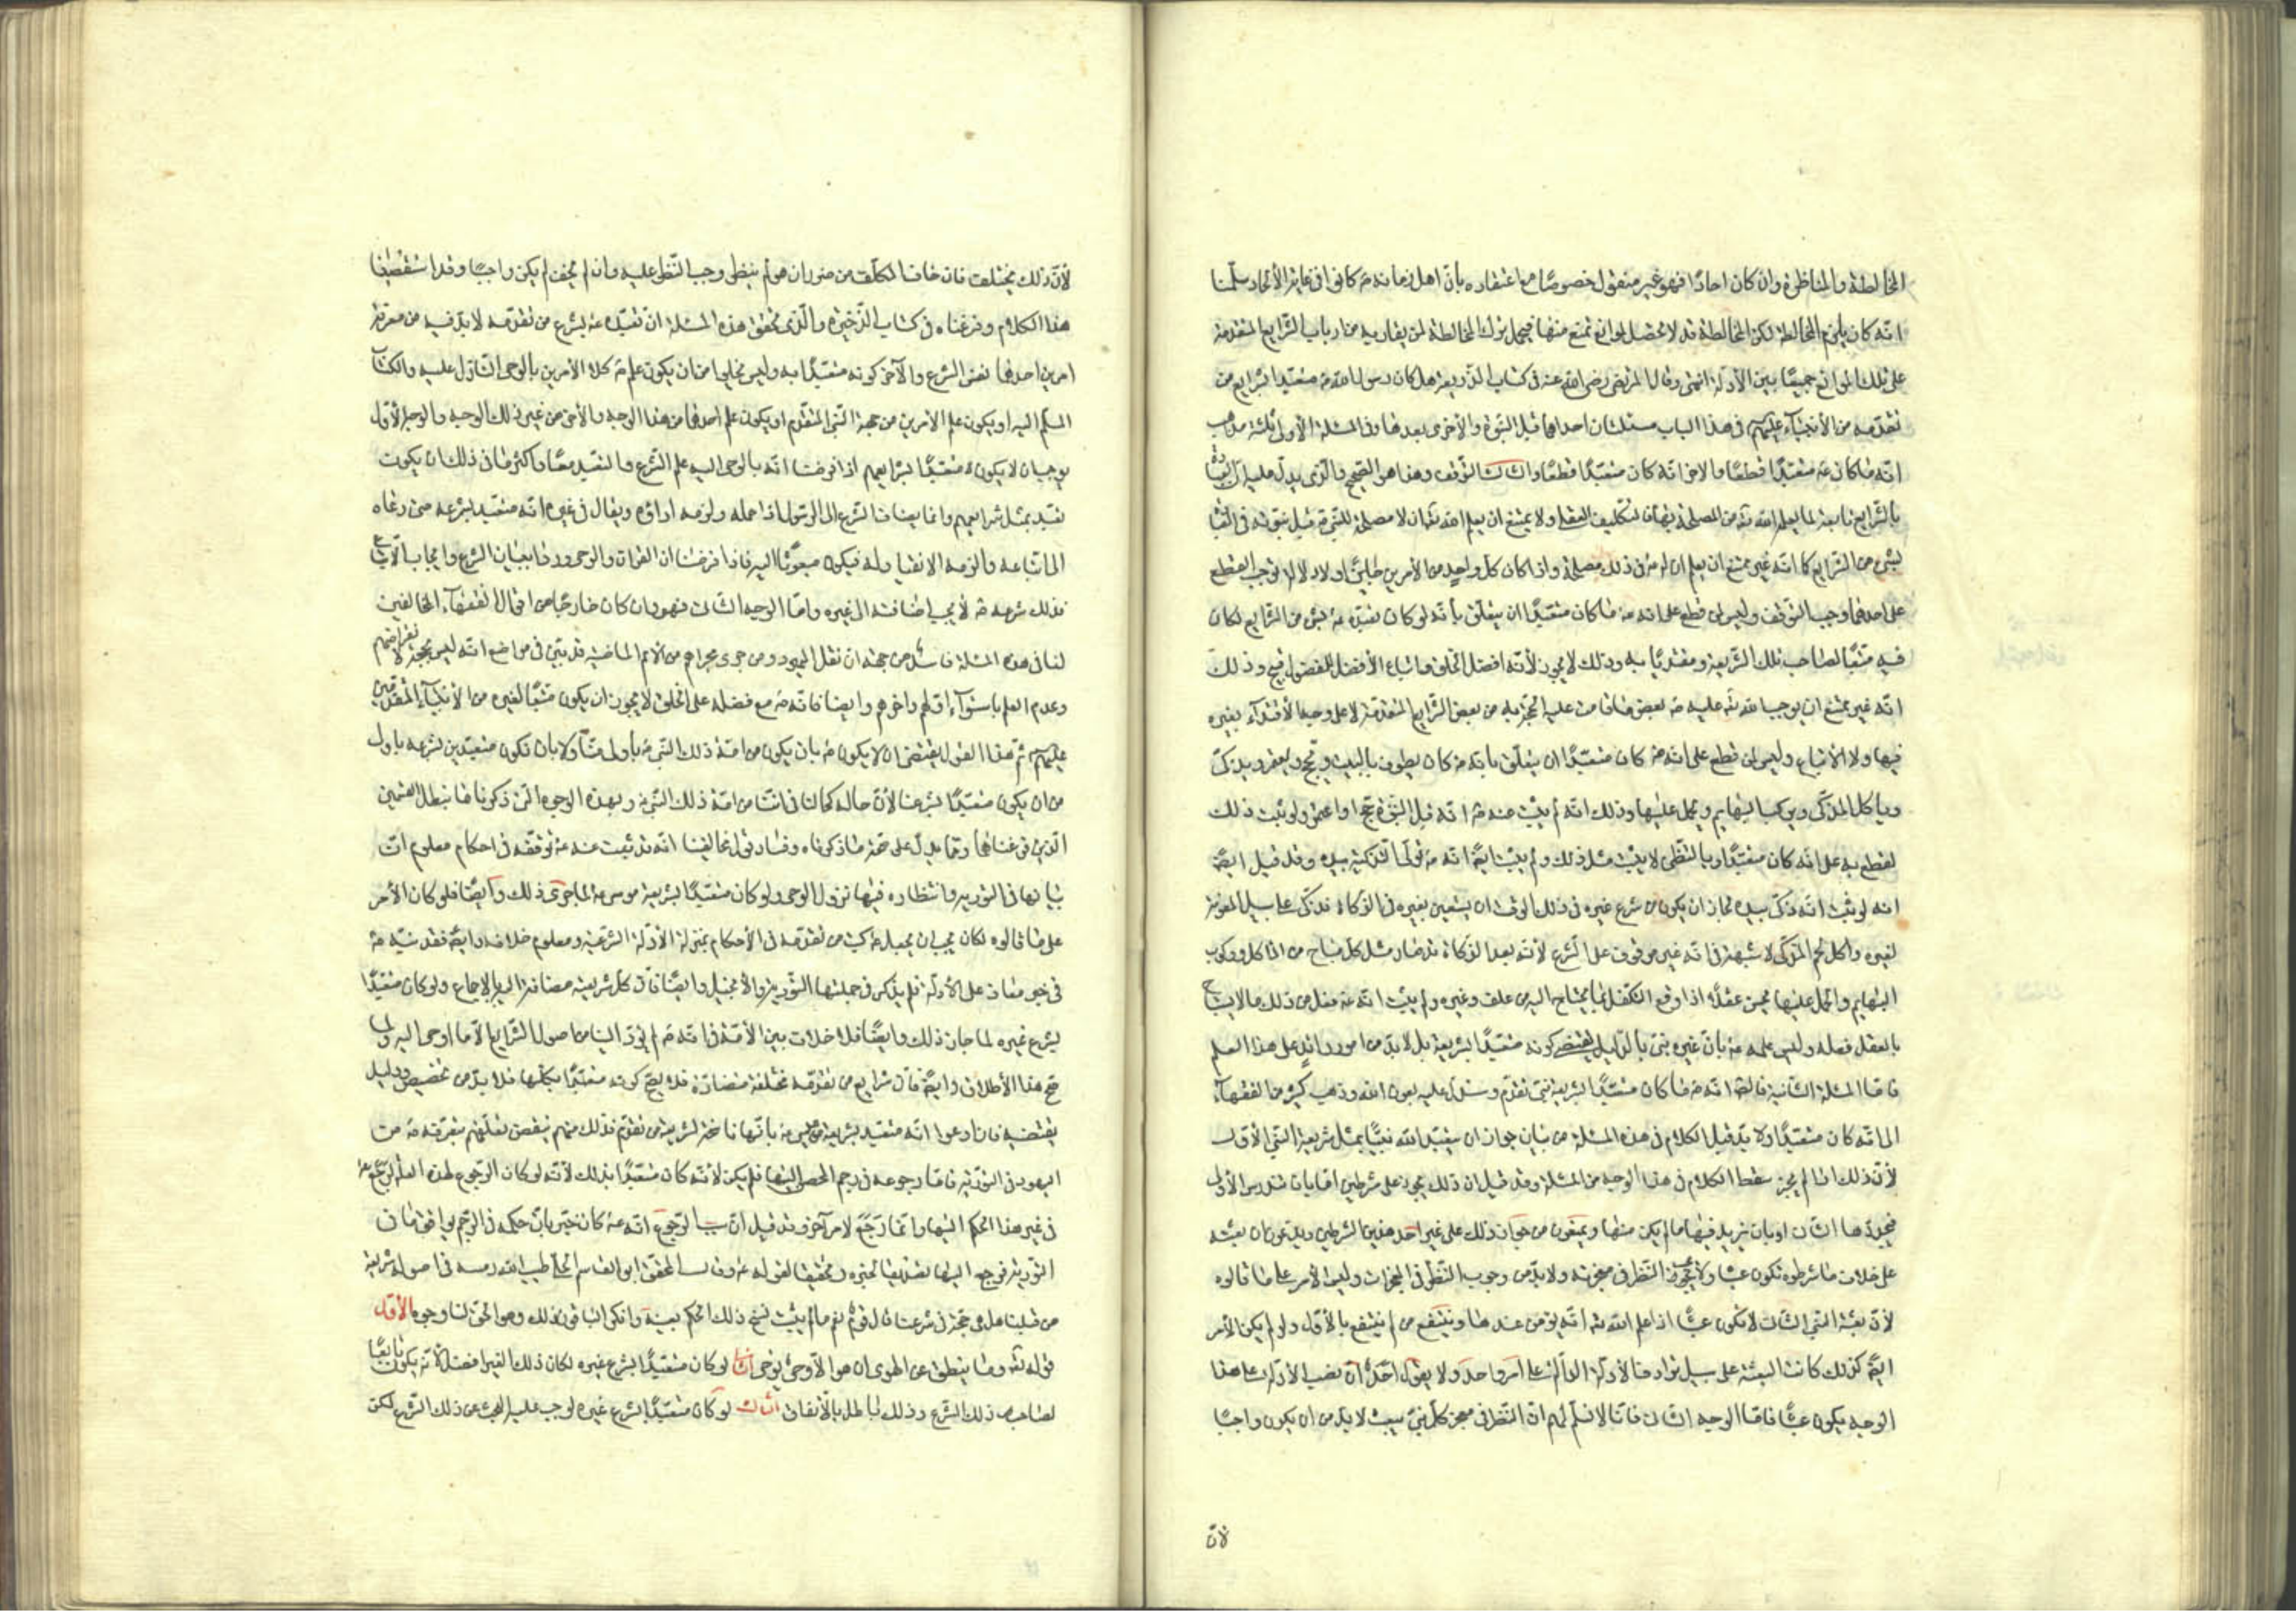 المخالطة والمناظرة وان كان احادًا فهو غير منقول خصوصًا مع اعتقاده بانّ اهل زمانه كانوا في غاية الالحاد سلّمنا
انّه كان يلزم المخالطة لكن المخالطة قد لا تحصل لموانع تمنع منها فيحمل ترك المخالطة لمن يقاربه من ارباب الشّرايع المتقدمة
على تلك الموانع جميعًا بين الأدلة انتهى وقال المرتضى رضي الله عنه في كتاب الذّريعة هل كان رسول الله ص متعبّدا بشرايع من
تقدّمه من الأنبيآء عليهم في هذا الباب مسئلتان احداهما قبل النّبوّة والأخرى بعدها وفي المسئلة الأولى ثلثة مذاهب
انّه ما كان ص متعبّدًا قطعًا والاخر انّه كان متعبّدًا قطعًا والثالث التّوقف وهذا هو الصّحيح والّذي يدلّ عليه انّ العبادة
بالشّرايع تابعة لما يعلم الله ته من المصلحة بها في التكليف العقلي ولا يمتنع ان يعلم الله ته ان لا مصلحة للنّبي ص قبل نبوّته في العبادة
بشئ من الشّرايع كما انّه غير ممتنع ان يعلم ان له ص في ذلك مصلحة واذا كان كلّ واحد من الأمرين جائزًا ولا دلالة توجب القطع
على احدهما وجب التّوقف وليس لمن قطع على انه ص ما كان متعبّدًا ان يتعلّق بأنّه لو كان تعبّده ص بشئ من الشّرايع لكان
فيه متّبعًا لصاحب تلك الشّريعة ومقتديًا به وذلك لا يجوز لأنّه افضل الخلق واتباع الأفضل للمفضول قبيح وذلك
انّه غير ممتنع ان يوجب الله ته عليه ص بعض ما قامت عليه الحجّة به من بعض الشّرايع المتقدمة لا على وجه الأقتدآء بغيره
فيها ولا الاتباع وليس لمن قطع على انّه ص كان متعبّدًا ان يتعلّق بانّه ص كان يطوف بالبيت ويحجّ ويعتمر ويذكّى
ويأكل المذكّى ويركب البهايم ويحمل عليها وذلك انّه لم يثبت عنه ص انّه قبل النّبوّة حجّ او اعتمر ولو ثبت ذلك
لقطع به على انّه كان متعبّدًا وبالتّظنّي لا يثبت مثل ذلك ولم يثبت ايضًا انّه ص تولّى التّذكية بيده وقد قيل ايضًا
انه لو ثبت انّه ذكّى بيده لجاز ان يكون من شرع غيره في ذلك الوقت ان يستعين بغيره في الذّكاة فذكّى على سبيل المعونة
لغيره واكل لحم المذكّى لا شبهة في انّه غير موقوف على الشّرع لأنّه بعد الذّكاة قد صار مثل كلّ مباح من المأكل وركوب
البهايم والحمل عليها يحسن عقلًا اذا وقع التكفّل بما يحتاج اليه من علف وغيره ولم يثبت انّه ص فعل من ذلك ما لا يستباح
بالعقل فعله وليس علمه ص بأنّ غيره نبيّ بالدّليل يقتضي كونه متعبّدًا بشريعته بل لا بدّ من امور زائد على هذا العلم
فامّا المسئلة الثّانية فالصّحيح انّه ص ما كان متعبّدًا بشريعة نبيّ تقدّم وسندلّ عليه بعون الله وذهب كثير من الفقهآء
الى انّه كان متعبّدًا ولا بدّ قبل الكلام في هذه المسئلة من بيان جواز ان يتعبّد الله نبيًّا بمثل شريعة النّبي الأوّل
لأنّ ذلك ان لم يجز سقط الكلام في هذا الوجه من المسئلة وقد قيل ان ذلك يجوز على شرطين امّا بان تندرس الأولى
فيجدّدها الثّاني او بان يزيد فيها ما لم يكن منها ويمنعون من جواز ذلك على غير احد هذين الشّرطين ويدّعون ان بعثته
على خلاف ما شرطوه تكون عبثًا ولا يجب النّظر في معجزته ولا بدّ من وجوب النّظر في المعجزات وليس الأمر على ما قالوه
لأنّ بعثة النّبي الثّاني لا تكون عبثًا اذا علم الله ته انّه يؤمن عندها وينتفع من لم ينتفع بالأوّل ولو لم يكن الأمر
ايضًا كذلك كانت البعثة على سبيل ترادف الأدلّة الدّالّة على امر واحد ولا يقول احد انّ نصب الأدلّة على هذا
الوجه يكون عبثًا فامّا الوجه الثّاني فانّا لا نسلّم لهم انّ النّظر في معجز كلّ نبيّ يبعث لا بدّ من ان يكون واجبًا
لأنّ
لأنّ ذلك يختلف فان خاف المكلّف من ضرر ان هو لم ينظر وجب النّظر عليه وان لم يخف لم يكن واجبًا وقد استقصينا
هذا الكلام وفرغناه في كتاب الذّخيرة والّذي يحقّق هذه المسئلة انّ تعبّده ص بشرع من تقدّمه لا بدّ فيه من معرفة
امرين احدهما نفس الشّرع والآخر كونه متعبّدًا به وليس يخلو امّا ان يكون علم ص كلا الأمرين بالوحي النّازل عليه والكتاب
المسلّم اليه او يكون علم الأمرين من جهة النّبي المتقدّم او يكون علم احدهما من هذا الوجه والأخر من غير ذلك الوجه والوجه الأوّل
يوجب ان لا يكون ص متعبّدًا بشرايعهم اذا فرضنا انّه بالوحي اليه علم الشّرع والتّعبّد معًا واكثر ما في ذلك ان يكون
تعبّد بمثل شرايعهم وانّما يضاف الشّرع الى الرّسول اذا حمله ولزمه اداؤه ويقال في غيره انّه متعبّد بشرعه متى دعاه
الى اتّباعه والزمه الانقياد له فيكون مبعوثًا اليه فاذا فرضنا ان القران والوحي وردا ببيان الشرع وايجاب الاتّباع
فذلك شرعه ص لا يجب اضافته الى غيره وامّا الوجه الثّاني فهو وان كان خارجًا من اقوال الفقهآء المخالفين
لنا في هذه المسئلة فاسد من جهة ان نقل اليهود ومن جرى مجراهم من الأمم الماضية قد بيّن في مواضع انّه ليس بحجة لانقراضهم
وعدم العلم باستوآء اوّلهم واخرهم وايضا فانّه ص مع فضله على الخلق لا يجوز ان يكون متّبعًا لغيره من الأنبيآء المتقدّمين
عليهم ثمّ هذا القول يقتضي ان لا يكون ص بان يكون من امّة ذلك النّبي ص بأولى منّا ولا بان نكون متعبّدين بشرعه باولى
من ان يكون متعبّدًا بشرعنا لأنّ حاله كحالنا في انّنا من امّة ذلك النّبي ص وبهذه الوجوه الّتي ذكرناها نبطل القسمين
الّذين فرغناهما وممّا يدلّ على صحّة ما ذكرناه وفساد قول مخالفينا انّه قد ثبت عنه ص توقّفه في احكام معلوم انّ
بيانها في التّورية وانتظاره فيها نزول الوحي ولو كان متعبّدًا بشريعة موسى ع لما جرى ذلك وايضًا فلو كان الأمر
على ما قالوه لكان يجب ان يجعل ص كتب من تقدّمه في الأحكام بمنزلة الأدلّة الشّرعيّة ومعلوم خلافه وايضًا فقد نبّه ص
في خبر معاذ على الأدلّة فلم يذكر في جملتها التّورية والأنجيل وايضًا فانّ كلّ شريعة مضافة اليه بالاجماع ولو كان متعبّدًا
بشرع غيره لما جاز ذلك وايضًا فلا خلاف بين الأمّة في انّه ص لم يؤدّ الينا من اصول الشّرايع الّا ما اوحي اليه ولما
صحّ هذا الأطلاق وايضًا فانّ شرايع من تقدّمه مختلفة متضادّة فلا يصحّ كونه متعبّدًا بكلّها فلا بدّ من تخصيص ودليل
يقتضيه فان ادعوا انّه متعبّد بشريعة عيسى ع بأنّها ناسخة لشريعة من تقدّم فذلك منهم ينقض تعلّقهم بتعرّفه ص من
اليهود في التّورية فامّا رجوعه في رجم المحصن اليها فلم يكن لأنّه كان متعبّدًا بذلك لأنّه لو كان الرّجوع لهذه العلّة لرجع ص
في غير هذا الحكم اليها وانّما رجع لامر آخر وقد قيل انّ سبب الرّجوع انّه ص كان خبّر بانّ حكمه في الرّجم يوافق ما في
التّورية فرجع اليها تصديقا لخبره وتحقيقا لقوله ص وقال المحقّق ابو القاسم الحلّي طيب الله رمسه في اصوله شريعة
من قبلنا هل هي حجّة في شرعنا قال قوم نعم ما لم يثبت نسخ ذلك الحكم بعينه وانكر الباقون ذلك وهو الحقّ لنا وجوه الأوّل
قوله ته وما ينطق عن الهوى ان هو الّا وحي يوحى الثّاني لو كان متعبّدًا بشرع غيره لكان ذلك الغير افضل لأنّه يكون تابعًا
لصاحب ذلك الشّرع وذلك باطل بالأتّفاق الثّالث لو كان متعبّدًا بشرع غيره لوجب عليه البحث عن ذلك الشّرع لكن